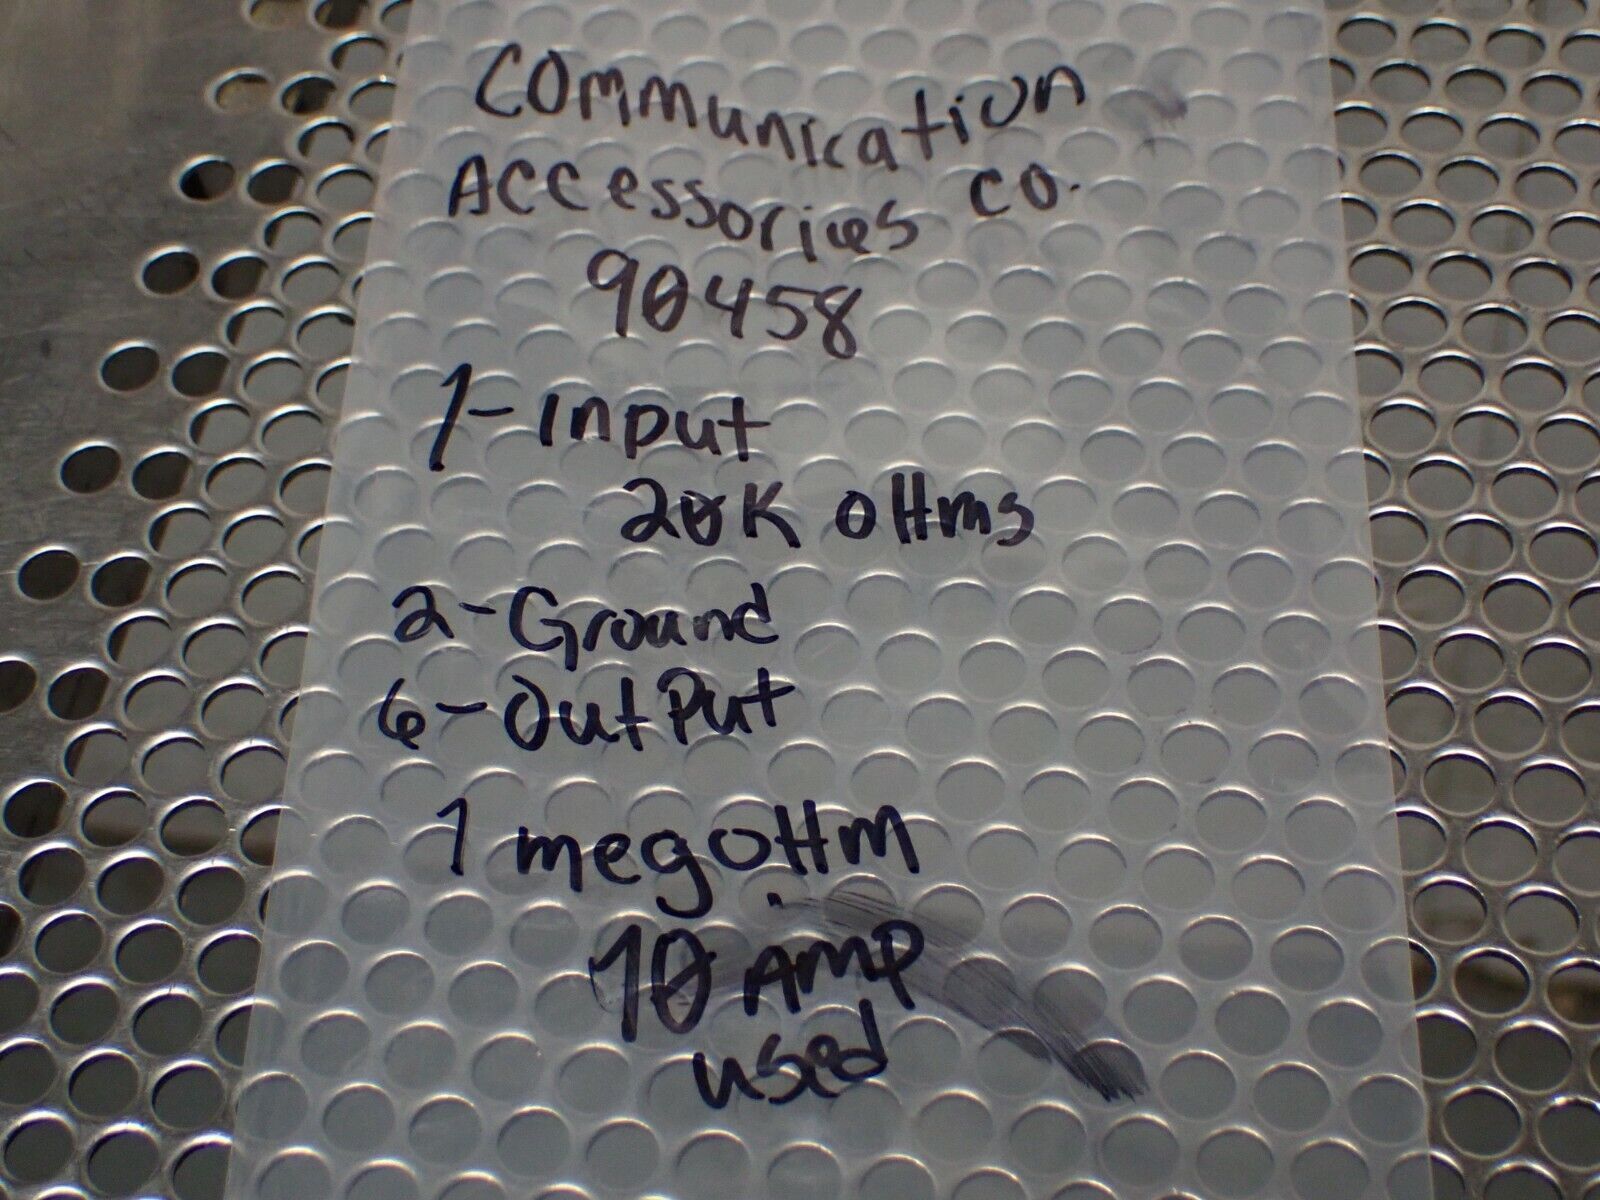 Communication
Accessories Co.
90458
1-Input
20K oHms
2-Ground
6-OutPut
1 megoHm
10 Amp
used